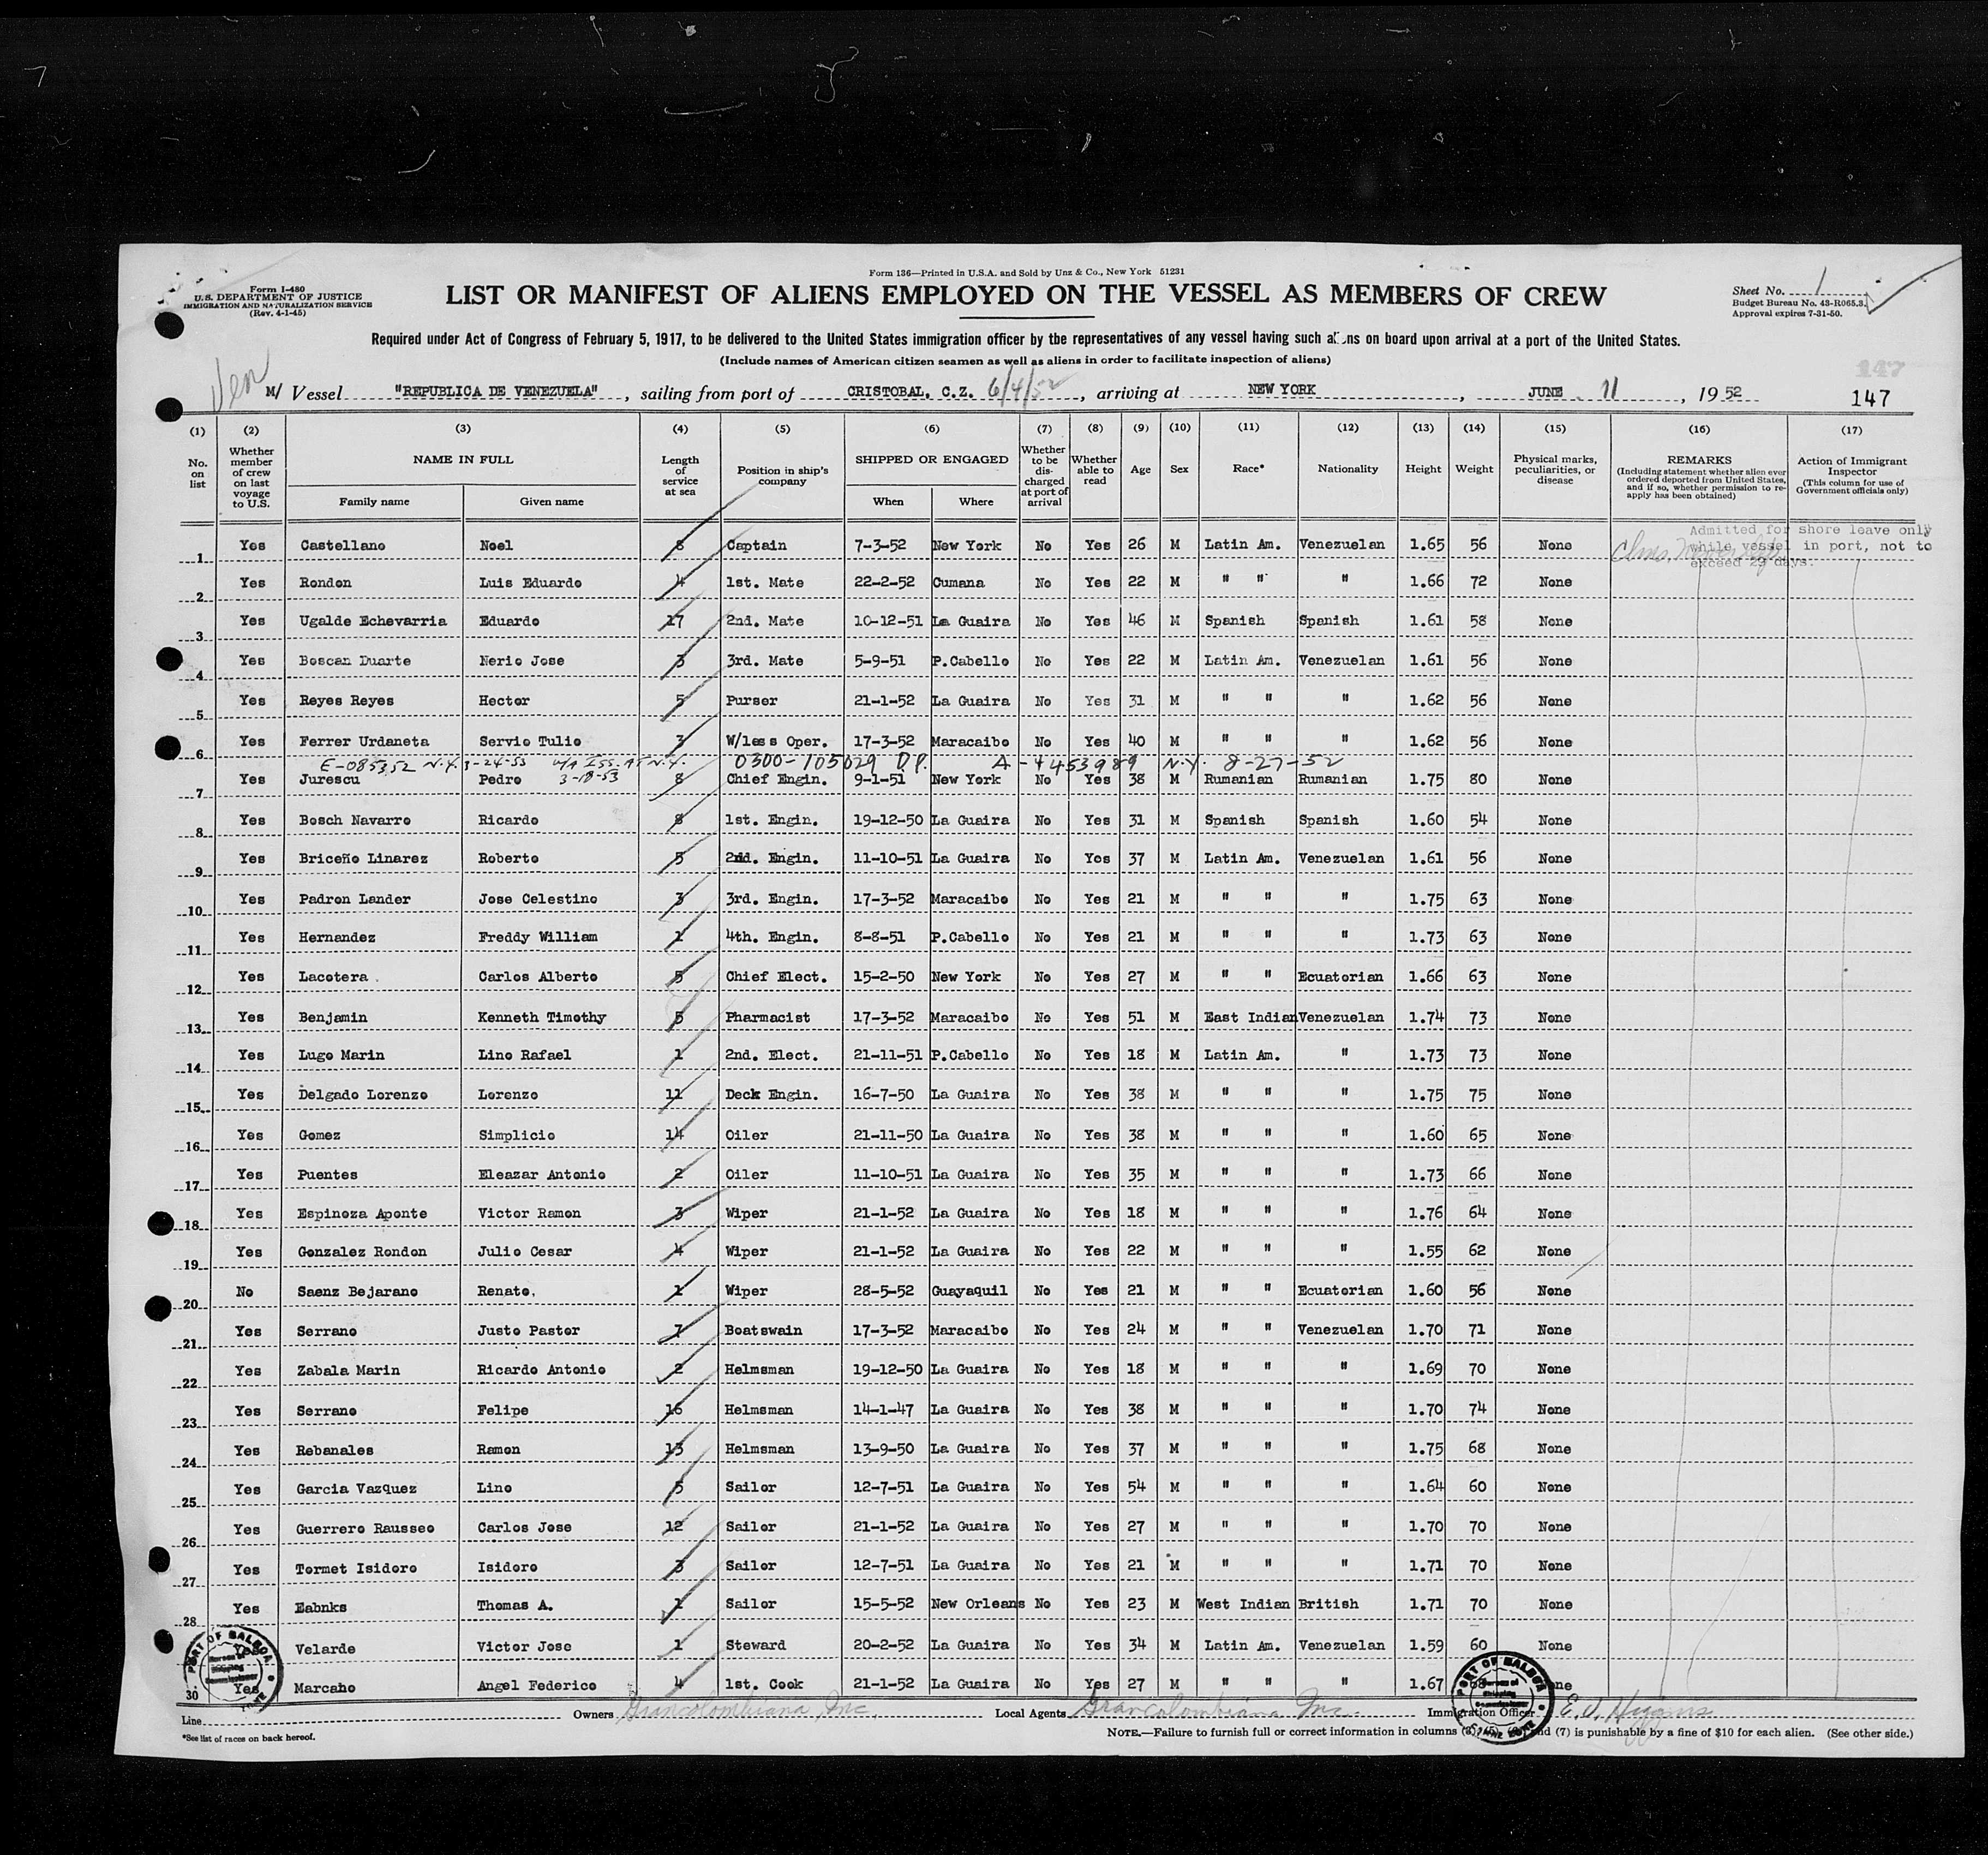 Form 136—Printed in U.S.A. and Sold by Unz & Co., New York 51231
Form I-480
U.S. DEPARTMENT OF JUSTICE
IMMIGRATION AND NATURALIZATION SERVICE
(Rev. 4-1-45)
LIST OR MANIFEST OF ALIENS EMPLOYED ON THE VESSEL AS MEMBERS OF CREW
Sheet No. 1
Budget Bureau No. 43-R065.3.
Approval expires 7-31-50.
Required under Act of Congress of February 5, 1917, to be delivered to the United States immigration officer by the representatives of any vessel having such aliens on board upon arrival at a port of the United States.
(Include names of American citizen seamen as well as aliens in order to facilitate inspection of aliens)
147
Ven
M/ Vessel "REPUBLICA DE VENEZUELA", sailing from port of CRISTOBAL, C.Z. 6/4/52, arriving at NEW YORK, JUNE 11, 1952 147
(1) (2) (3) (4) (5) (6) (7) (8) (9) (10) (11) (12) (13) (14) (15) (16) (17)
No. on list
Whether member of crew on last voyage to U.S.
NAME IN FULL
Family name
Given name
Length of service at sea
Position in ship's company
SHIPPED OR ENGAGED
When
Where
Whether to be discharged at port of arrival
Whether able to read
Age
Sex
Race*
Nationality
Height
Weight
Physical marks, peculiarities, or disease
REMARKS
(Including statement whether alien ever ordered deported from United States, and if so, whether permission to reapply has been obtained)
Action of Immigrant Inspector
(This column for use of Government officials only)
Admitted for shore leave only
while vessel in port, not to
exceed 29 days.
1 Yes Castellano Noel 8 Captain 7-3-52 New York No Yes 26 M Latin Am. Venezuelan 1.65 56 None
2 Yes Rondon Luis Eduardo 4 1st. Mate 22-2-52 Cumana No Yes 22 M " " " 1.66 72 None
3 Yes Ugalde Echevarria Eduardo 17 2nd. Mate 10-12-51 La Guaira No Yes 46 M Spanish Spanish 1.61 58 None
4 Yes Boscan Duarte Nerio Jose 3 3rd. Mate 5-9-51 P.Cabello No Yes 22 M Latin Am. Venezuelan 1.61 56 None
5 Yes Reyes Reyes Hector 5 Purser 21-1-52 La Guaira No Yes 31 M " " " 1.62 56 None
6 Yes Ferrer Urdaneta Servio Tulio 3 W/less Oper. 17-3-52 Maracaibo No Yes 40 M " " " 1.62 56 None
E-085352 N.Y. 3-24-53 Iss. at N.Y. 3-18-53 0300-105029 D.P. A-4453989 N.Y. 8-27-52
7 Yes Jurescu Pedro 8 Chief Engin. 9-1-51 New York No Yes 38 M Rumanian Rumanian 1.75 80 None
8 Yes Bosch Navarro Ricardo 8 1st. Engin. 19-12-50 La Guaira No Yes 31 M Spanish Spanish 1.60 54 None
9 Yes Briceño Linarez Roberto 5 2nd. Engin. 11-10-51 La Guaira No Yes 37 M Latin Am. Venezuelan 1.61 56 None
10 Yes Padron Lander Jose Celestino 3 3rd. Engin. 17-3-52 Maracaibo No Yes 21 M " " " 1.75 63 None
11 Yes Hernandez Freddy William 1 4th. Engin. 8-8-51 P.Cabello No Yes 21 M " " " 1.73 63 None
12 Yes Lacotera Carlos Alberto 5 Chief Elect. 15-2-50 New York No Yes 27 M " " Ecuatorian 1.66 63 None
13 Yes Benjamin Kenneth Timothy 5 Pharmacist 17-3-52 Maracaibo No Yes 51 M East Indian Venezuelan 1.74 73 None
14 Yes Lugo Marin Lino Rafael 1 2nd. Elect. 21-11-51 P.Cabello No Yes 18 M Latin Am. " 1.73 73 None
15 Yes Delgado Lorenzo Lorenzo 11 Deck Engin. 16-7-50 La Guaira No Yes 38 M " " " 1.75 75 None
16 Yes Gomez Simplicio 14 Oiler 21-11-50 La Guaira No Yes 38 M " " " 1.60 65 None
17 Yes Puentes Eleazar Antonio 2 Oiler 11-10-51 La Guaira No Yes 35 M " " " 1.73 66 None
18 Yes Espinoza Aponte Victor Ramon 3 Wiper 21-1-52 La Guaira No Yes 18 M " " " 1.76 64 None
19 Yes Gonzalez Rondon Julio Cesar 4 Wiper 21-1-52 La Guaira No Yes 22 M " " " 1.55 62 None
20 No Saenz Bejarano Renato, 1 Wiper 28-5-52 Guayaquil No Yes 21 M " " Ecuatorian 1.60 56 None
21 Yes Serrano Justo Pastor 7 Boatswain 17-3-52 Maracaibo No Yes 24 M " " Venezuelan 1.70 71 None
22 Yes Zabala Marin Ricardo Antonio 2 Helmsman 19-12-50 La Guaira No Yes 18 M " " " 1.69 70 None
23 Yes Serrano Felipe 16 Helmsman 14-1-47 La Guaira No Yes 38 M " " " 1.70 74 None
24 Yes Rebanales Ramon 13 Helmsman 13-9-50 La Guaira No Yes 37 M " " " 1.75 68 None
25 Yes Garcia Vazquez Lino 5 Sailor 12-7-51 La Guaira No Yes 54 M " " " 1.64 60 None
26 Yes Guerrero Rausseo Carlos Jose 12 Sailor 21-1-52 La Guaira No Yes 27 M " " " 1.70 70 None
27 Yes Tormet Isidoro Isidoro 3 Sailor 12-7-51 La Guaira No Yes 21 M " " " 1.71 70 None
28 Yes Eabnks Thomas A. 1 Sailor 15-5-52 New Orleans No Yes 23 M West Indian British 1.71 70 None
Yes Velarde Victor Jose 1 Steward 20-2-52 La Guaira No Yes 34 M Latin Am. Venezuelan 1.59 60 None
30 Yes Marcano Angel Federico 4 1st. Cook 21-1-52 La Guaira No Yes 27 M " " " 1.67 68 None
PORT OF BALBOA
PORT OF BALBOA
Line Owners Grancolombiana, Inc. Local Agents Grancolombiana Inc. Immigration Officer E. J. Higgins
*See list of races on back hereof.
NOTE.—Failure to furnish full or correct information in columns and (7) is punishable by a fine of $10 for each alien. (See other side.)